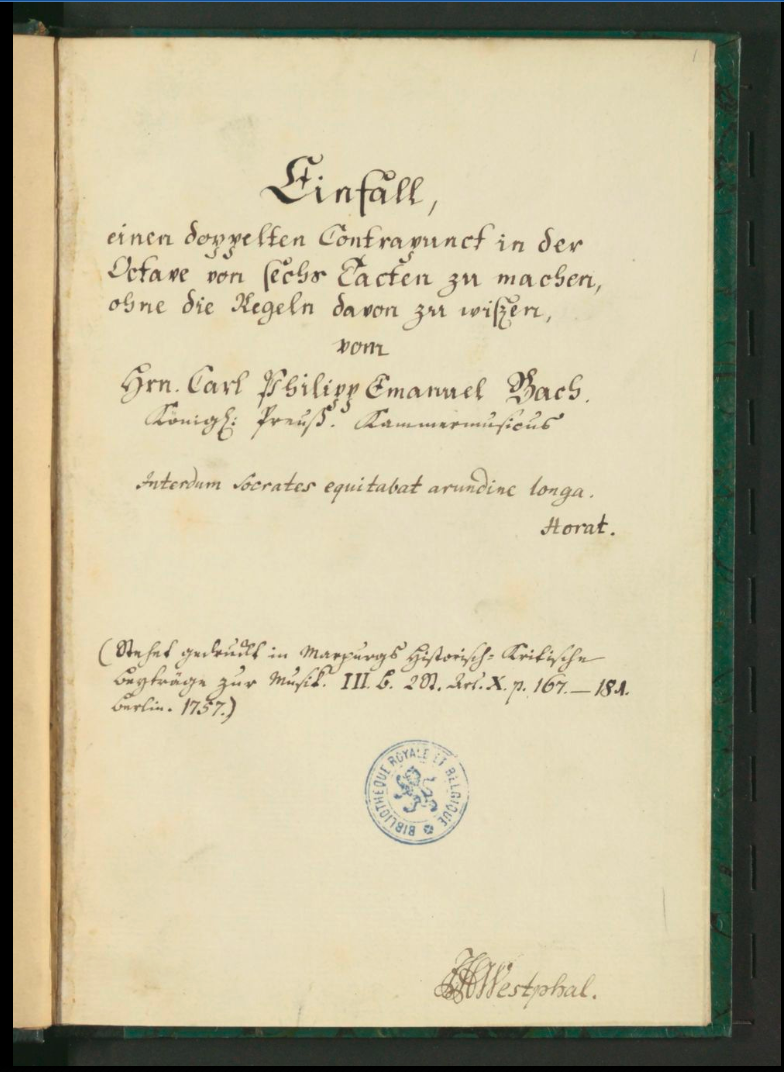 1
Einfall,
einen doppelten Contrapunct in der
Octave von sechs Tacten zu machen,
ohne die Regeln davon zu wißen,
vom
Hrn. Carl Philipp Emanuel Bach.
Königl: Preuß. Kammermusicus
Interdum Socrates equitabat arundine longa.
Horat.
(Stehet gedruckt in Marpurgs Historisch-Kritische
Beyträge zur Musik. III. B. 2 St. Art. X. p. 167.—181.
Berlin. 1757.)
BIBLIOTHEQUE ROYALE ET BELGIQUE
JJHWestphal.